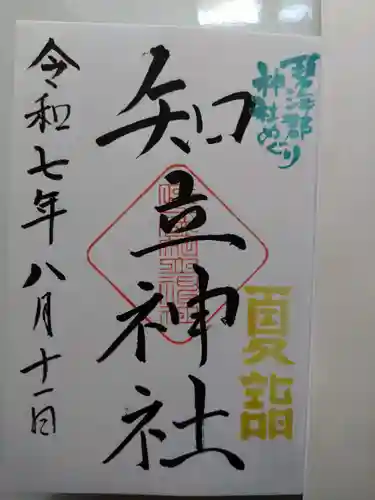 碧海郡
神社めぐり
夏詣
知立神社
令和七年八月十一日